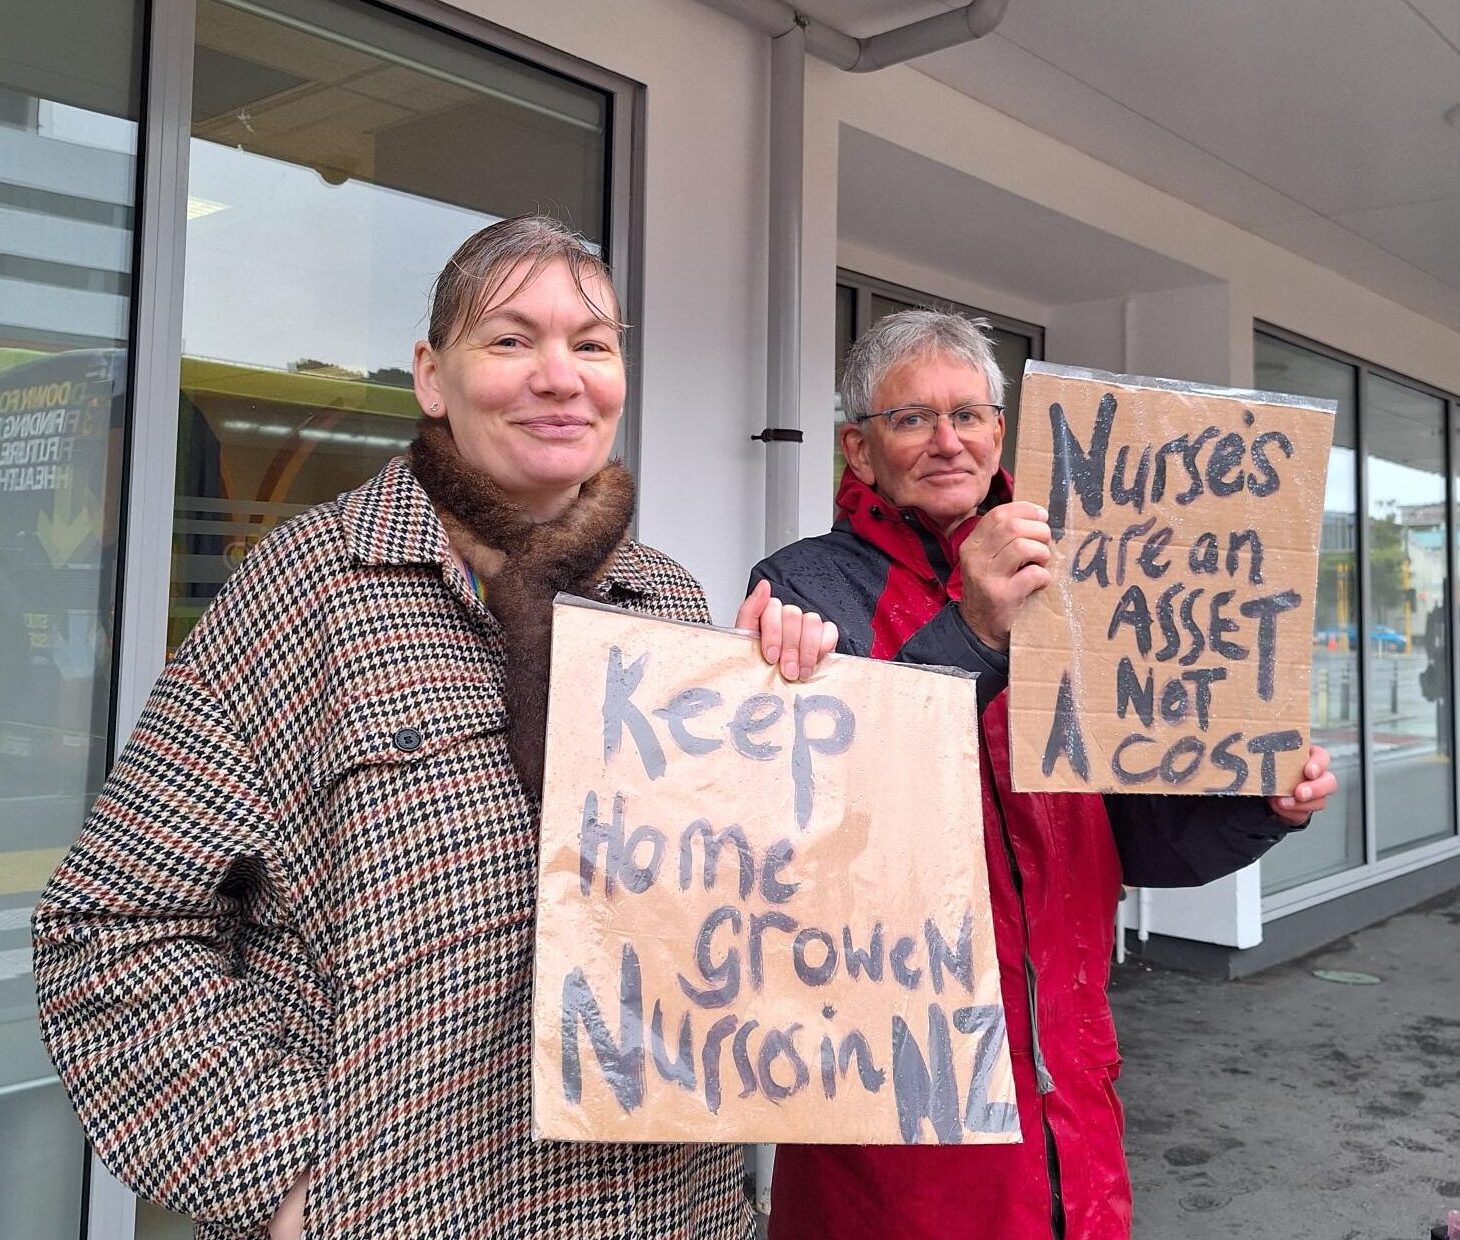 Keep
Home
growen
Nurses in NZ
Nurse's
are an
ASSET
NOT
A COST
DOWN FO
FINDING
FUTURE
HEALTH